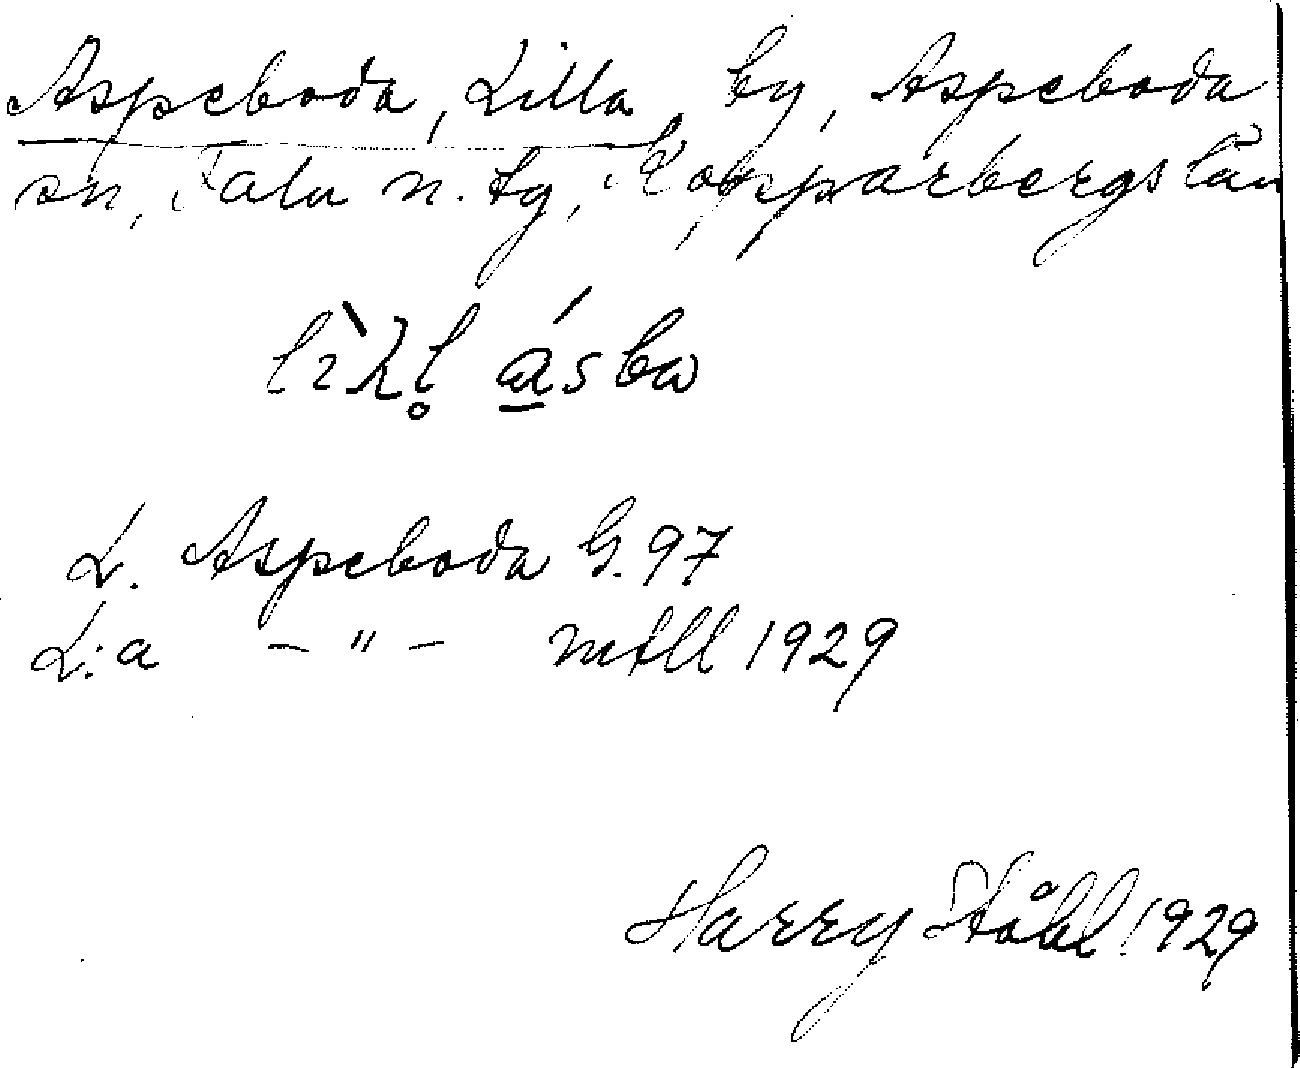 Aspeboda, Lilla by, Aspeboda
sn, Falu n. tg, Kopparbergs län
L. Aspeboda G. 97
L:a - " - mtll 1929
Harry Ståhl 1929